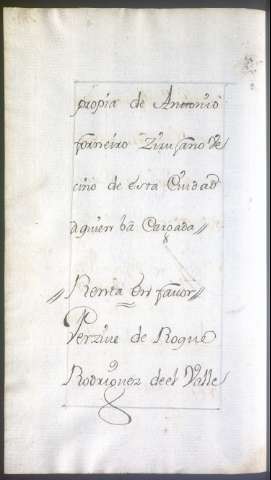 propia de Antonio
forneiro Zirujano Ve
cino de esta Ciudad
aquien ba Cargada//
//Renta en favor//
Perzive de Roque
Rodriguez deel Valle